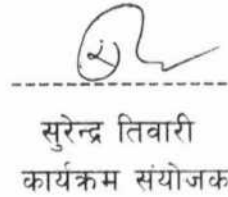 सुरेन्द्र तिवारी
कार्यक्रम संयोजक